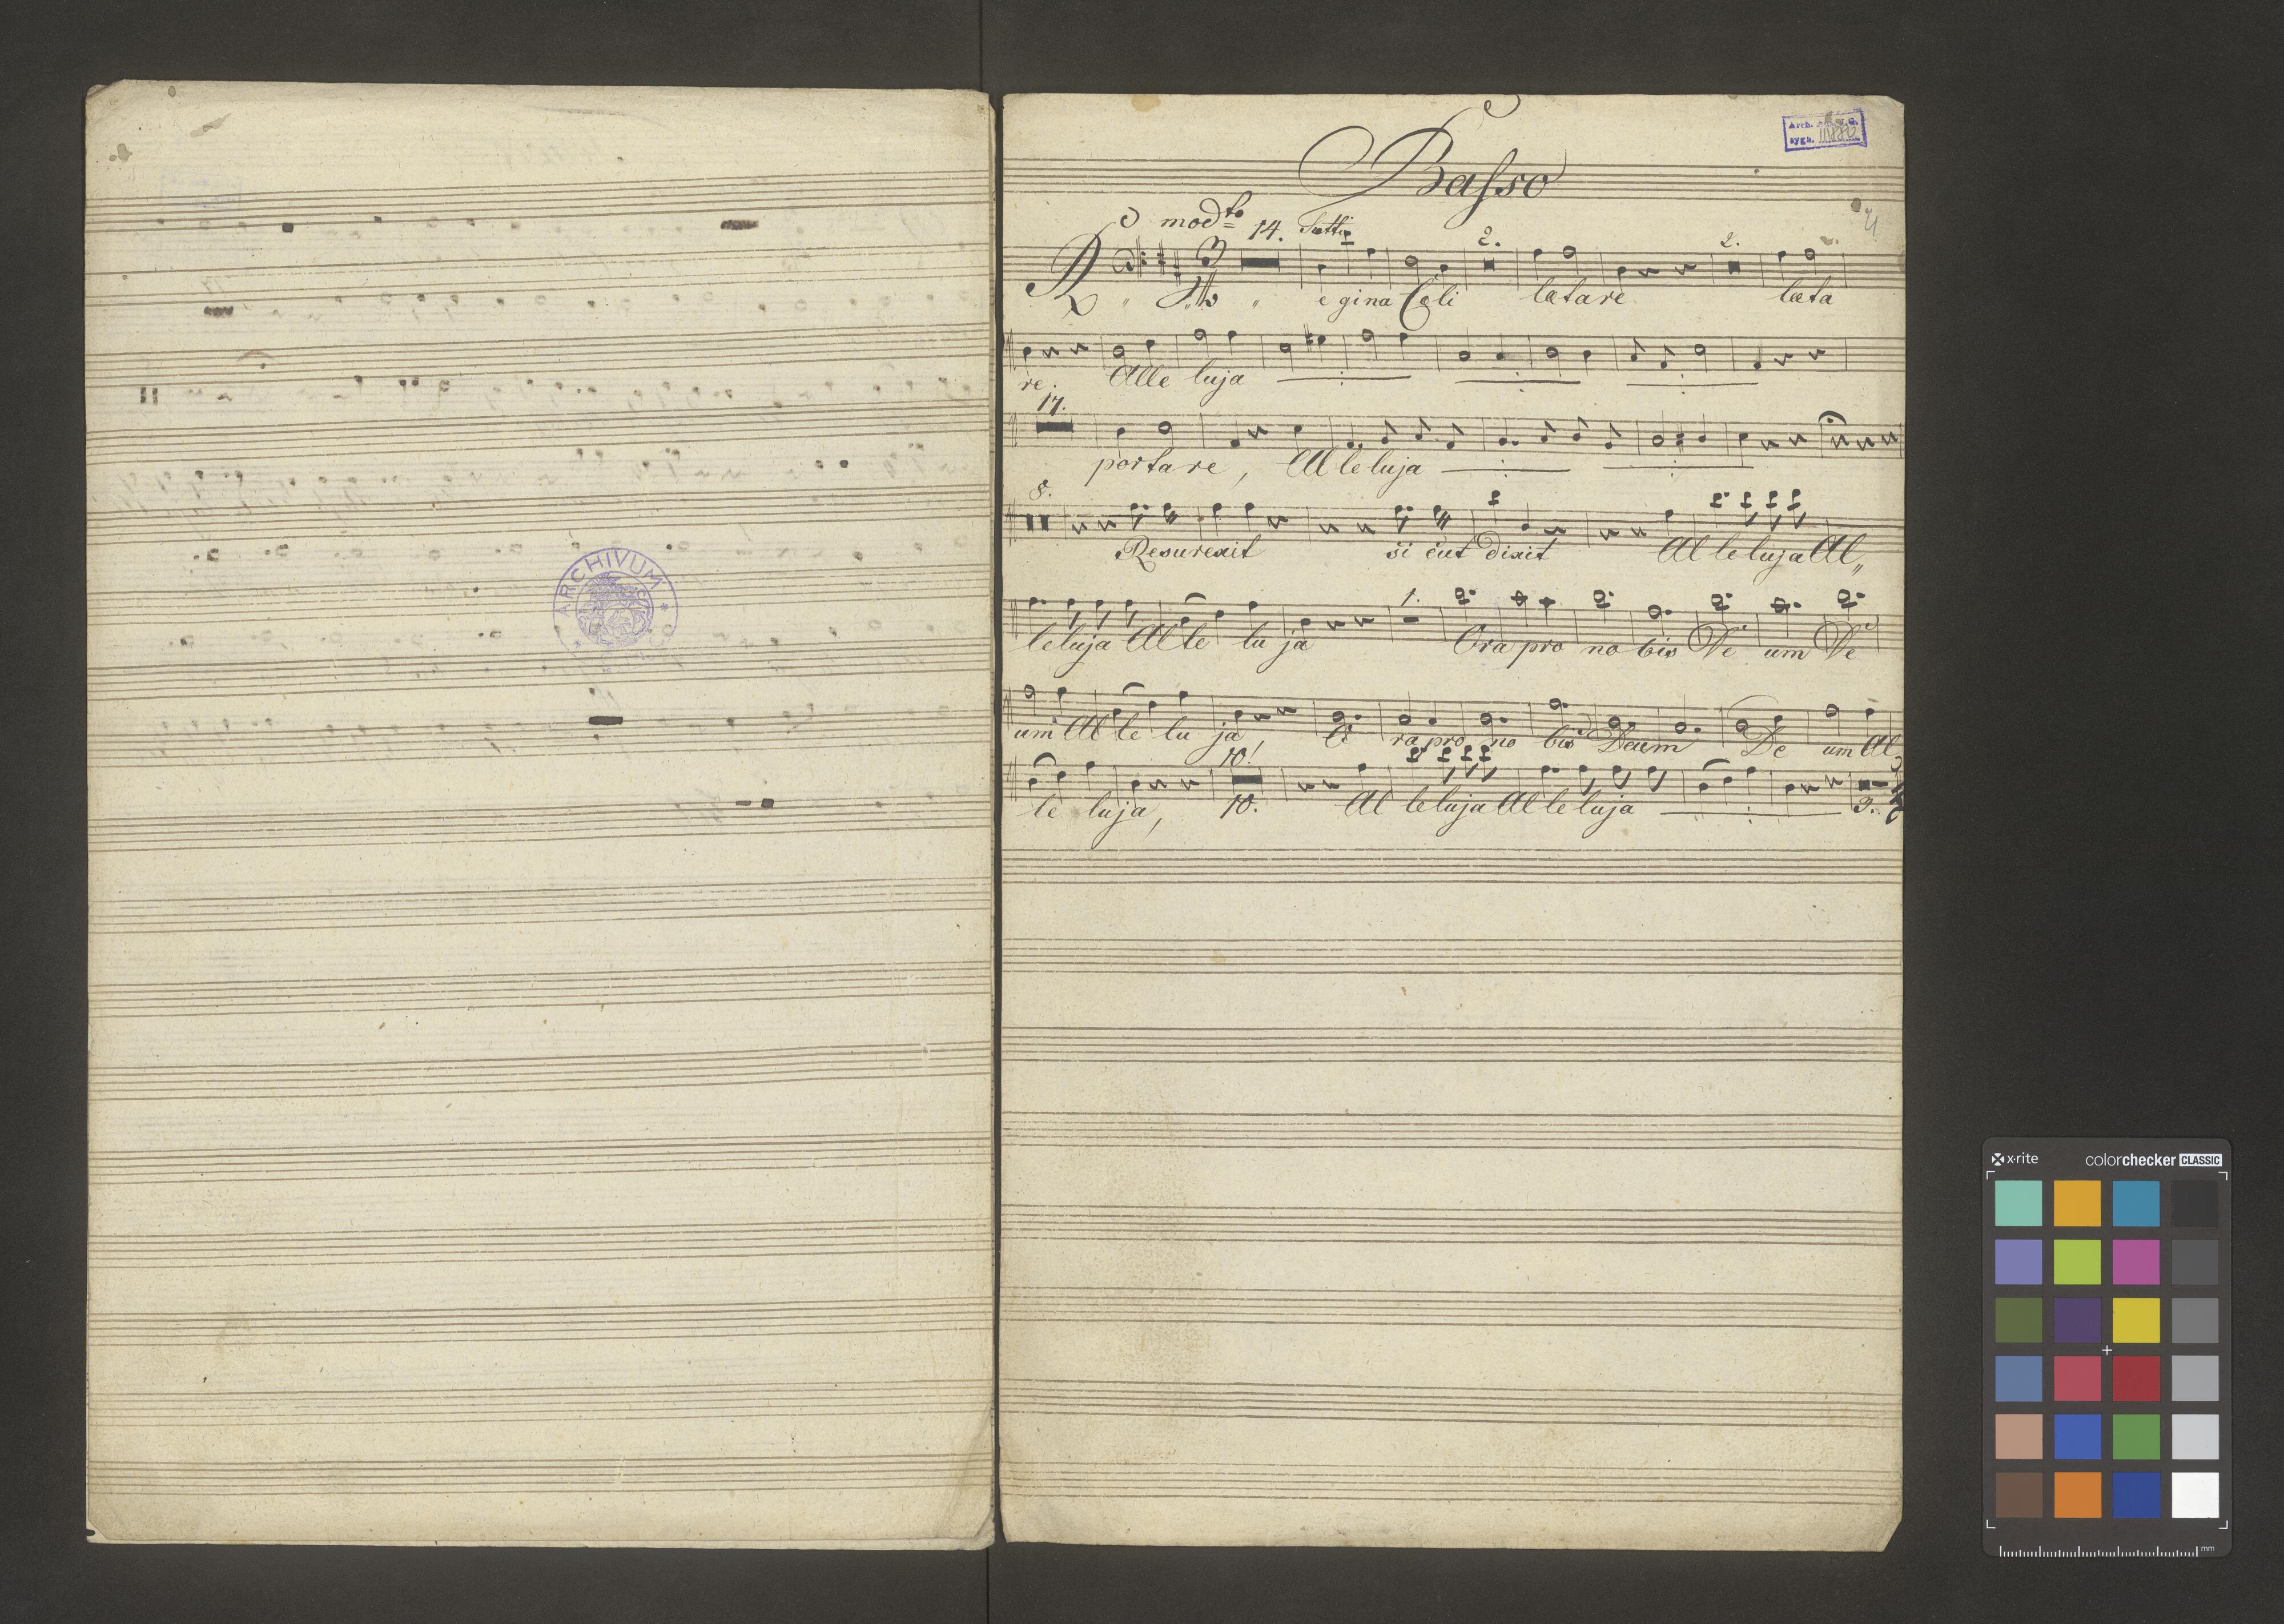 ARCHIVUM
Arch.
sygn.
Basso
modto 14. Tutti 2. 2.
Regina Cæli lætare læta
re. Alle luja
17.
portare, Alleluja
8.
Resurexit si cut dixit Al le luja Al„
1.
leluja Al le lu ja Ora pro no bis De um De
um Al le lu ja, O ra pro no bis Deum De um Al
10!
le luja, 10. Al leluja Al le luja 3.
x-rite colorchecker CLASSIC
mm